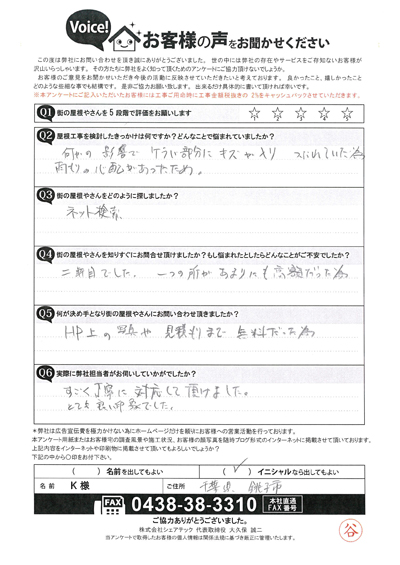 Voice!
お客様の声をお聞かせください
この度は弊社にお問い合わせを頂き誠にありがとうございました。世の中には弊社の存在やサービスをご存知ないお客様が
沢山いらっしゃいます。その方たちに弊社をよく知って頂くためのアンケートにご協力頂けないでしょうか。
お客様のご意見をお聞かせいただき今後の活動に反映させていただきたいと考えております。良かったこと、嬉しかったこと
どのような些細な事でも結構です。是非ご協力お願い致します。出来るだけ具体的に書いて頂ければ幸いです。
※本アンケートにご記入いただいたお客様には工事ご用命時に工事金額税抜きの2%をキャッシュバックさせていただきます。
Q1 街の屋根やさんを5段階で評価をお願いします ☆ ☆ ☆ ☆ ☆
Q2 屋根工事を検討したきっかけは何ですか?どんなことで悩まれていましたか?
何かの影響で ケラバ部分に キズが入り つぶれていた為
雨もりの心配があったため。
Q3 街の屋根やさんをどのように探しましたか?
ネット検索
Q4 街の屋根やさんを知りすぐにお問合せ頂けましたか?もし悩まれたとしたらどんなことがご不安でしたか?
二軒目でした。一つの所があまりにも高額だった為
Q5 何が決め手となり街の屋根やさんにお問い合わせ頂きましたか?
HP上の写真や 見積もりまで 無料だった為
Q6 実際に弊社担当者がお伺いしていかがでしたか?
すごく丁寧に 対応して頂けました。
とても良い印象でした。
*弊社は広告宣伝費を極力かけない為にホームページだけを頼りにお客様への営業活動を行っております。
本アンケート用紙またはお客様宅の調査風景や施工状況、お客様の顔写真を随時ブログ形式のインターネットに掲載させて頂いております。
上記内容をインターネットや印刷物に掲載させて頂いてもよろしいでしょうか?
下記の中から○印をお付下さい。
( )名前を出してもよい ( ✓ )イニシャルなら出してもよい
名前 K 様 ご住所 千葉県 銚子市
FAX 0438-38-3310 本社直通 FAX番号
ご協力ありがとうございました。
株式会社シェアテック 代表取締役 大久保 誠二
当アンケートで取得したお客様の個人情報は関係法規に基づき厳正に管理いたします。
谷